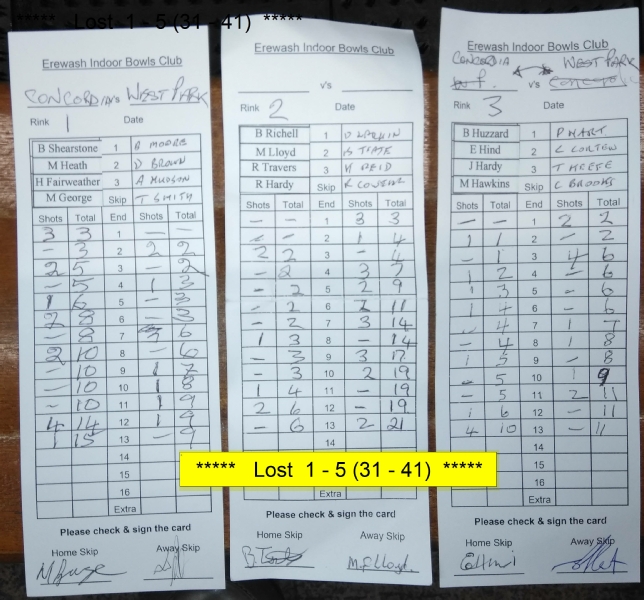 ***** Lost 1 - 5 (31 - 41) *****
Erewash Indoor Bowls Club
CONCORDIA v's WEST PARK
Rink 1 Date
B Shearstone 1 B MOORE
M Heath 2 D BROWN
H Fairweather 3 A HUDSON
M George Skip T SMITH
Shots Total End Shots Total
3 3 1 — —
— 3 2 2 2
2 5 3 — 2
— 5 4 1 3
1 6 5 — 3
2 8 6 — 3
— 8 7 3 6
2 10 8 — 6
— 10 9 1 7
— 10 10 1 8
— 10 11 1 9
4 14 12 1 9
1 15 13 — 9
14
15
16
Extra
Please check & sign the card
Home Skip Away Skip
Erewash Indoor Bowls Club
v's
Rink 2 Date
B Richell 1
M Lloyd 2
R Travers 3 H REID
R Hardy Skip
Shots Total End Shots Total
— — 1 3 3
— — 2 1 4
2 2 3 — 4
— 2 4 3 7
— 2 5 2 9
— 2 6 2 11
— 2 7 3 14
1 3 8 — 14
— 3 9 3 17
— 3 10 2 19
1 4 11 — 19
2 6 12 — 19
— 6 13 2 21
14
15
16
Extra
Please check & sign the card
Home Skip Away Skip
M.F. Lloyd
Erewash Indoor Bowls Club
CONCORDIA v's WEST PARK
Rink 3 Date
B Huzzard 1 P HART
E Hind 2
J Hardy 3 T KEEFE
M Hawkins Skip C BROOKS
Shots Total End Shots Total
— — 1 2 2
1 1 2 — 2
— 1 3 4 6
1 2 4 — 6
1 3 5 — 6
1 4 6 — 6
— 4 7 1 7
— 4 8 1 8
1 5 9 — 8
— 5 10 1 9
— 5 11 2 11
1 6 12 — 11
4 10 13 — 11
14
15
16
Extra
Please check & sign the card
Home Skip Away Skip
***** Lost 1 - 5 (31 - 41) *****